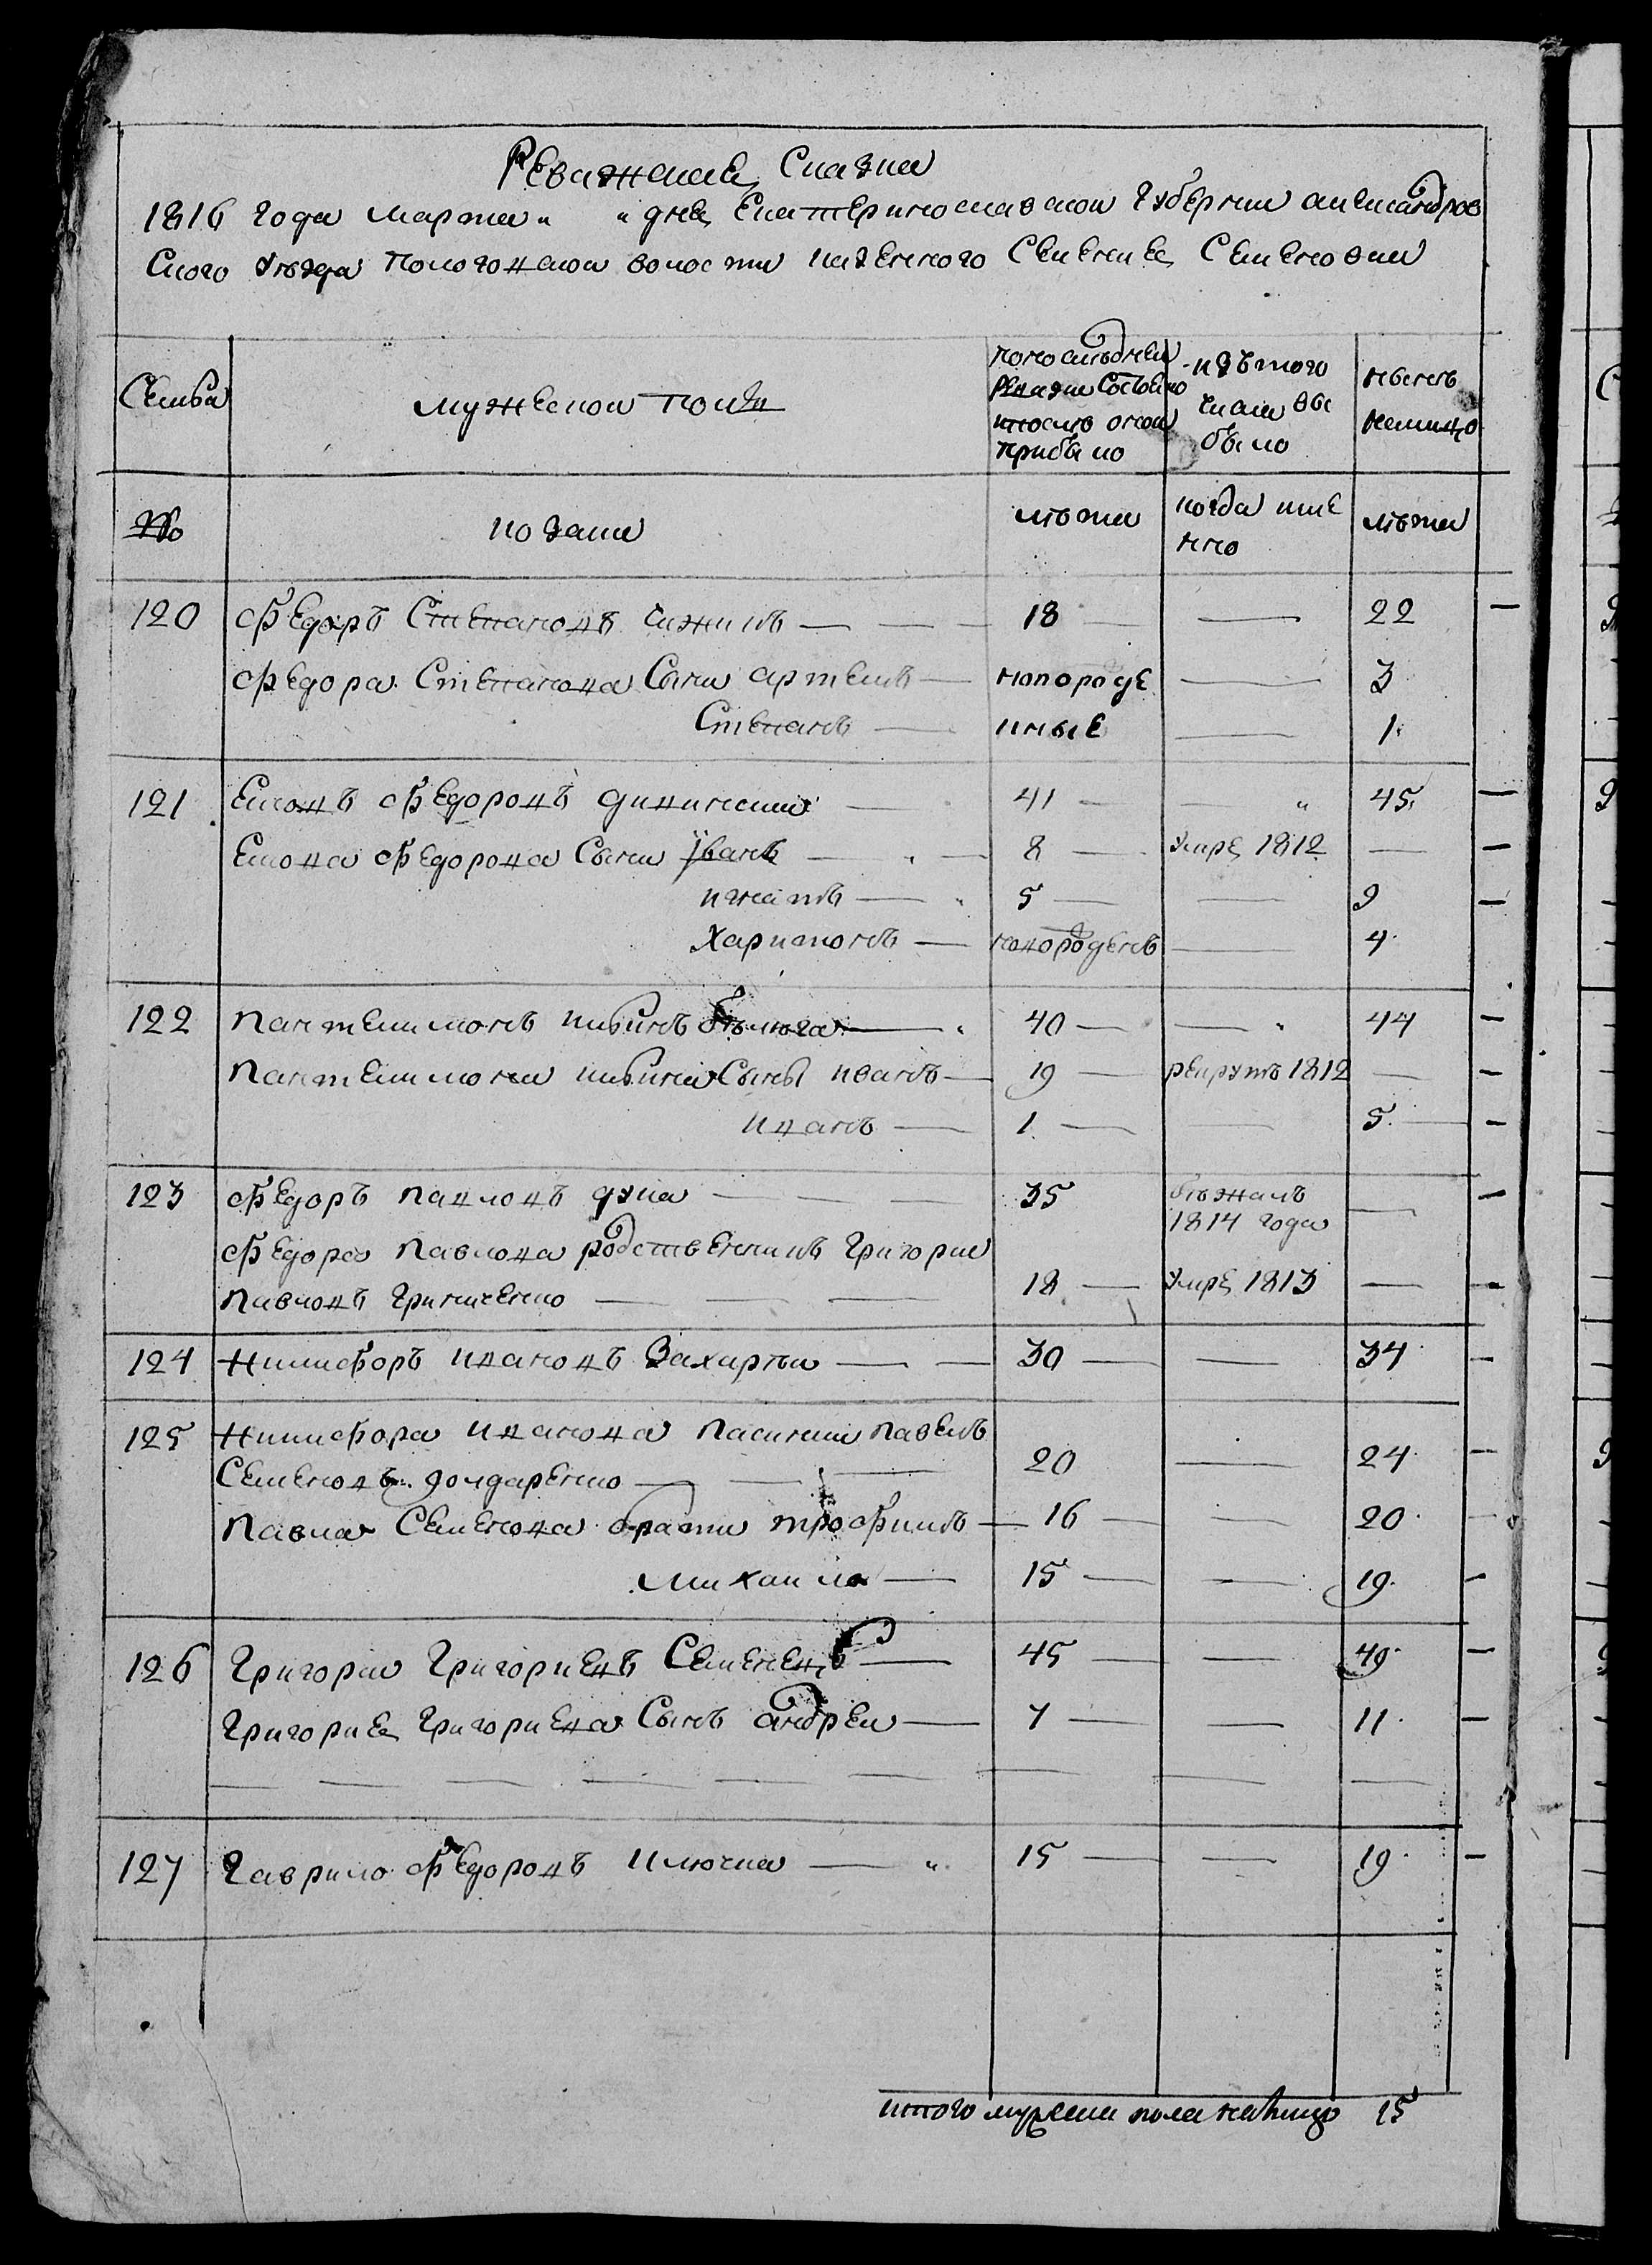 Ревижская Сказка
1816 года марта " " дня Екатеринославской губернии александров
Ского уезда пологовской волости казенного Селения Семеновки
Семьи
мужеской полъ
попоследней Ревизии Состояло и после оной прибыло
изътого числа выбыло
ныне налицо
№
казаки
лѣта
когда имянно
лѣта
120 Федоръ Степановъ Чижикъ — 18 — 22
Федора Степанова Сыни артемъ — новорожденные — 3
Степанъ — 1
121 Федоровъ — 41 — " 45
Федорова Сыни Їванъ — 8 — Умре 1812 —
игнатъ — 5 — 9
Харитонъ — новорожденъ — 4
122 Пантелимонъ — 40 — " 44
Пантелимона Сыны иванъ — 19 — рекрутъ 1812 —
иванъ — 1 — 5
123 Федоръ Павловъ — 35 бѣжалъ 1814 года —
Федора Павлова родственникъ Григорий
Павловъ Гринченко — 18 — Умре 1813 —
124 Никифоръ Ивановъ Захарта — 30 — 34
125 Никифора Иванова Пасинки Павелъ
Семеновъ Бондаренко — 20 — 24
Павла Семенова брати трофимъ — 16 — 20
михаила — 15 — 19
126 Григорий Григориевъ Семенецъ — 45 — 49
Григория Григориева Сынъ андрей — 7 — 11
127 Гаврило Федоровъ Клочка — " 15 — 19
итого мужеска пола налицо 15